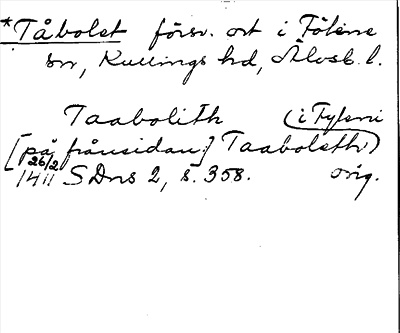 *Tåbolet försv. ort i Fölene
sn, Kullings hd, Älvsb. l.
Taabolith (i Fyleni
[på frånsidan:] Taaboleth)
26/2 1411 SDns 2, s. 358. orig.